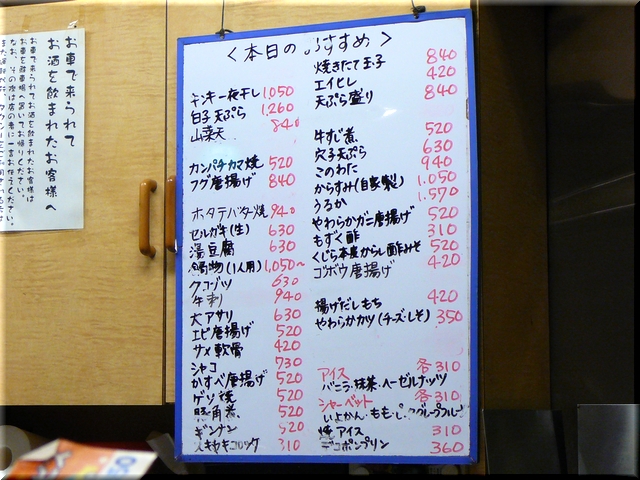 お車で来られて
お酒を飲まれたお客様へ
お車で来られてお酒を飲まれたお客様は
お車を駐車場へ置いてお帰りください。
なお、その次は店の者に一言お伝えください。
<本日のおすすめ>
キンキ一夜干し 1,050
白子天ぷら 1,260
山菜天 840
カンパチカマ焼 520
フグ唐揚げ 840
ホタテバター焼 940
セルガキ(生) 630
湯豆腐 630
鍋物(1人用) 1,050〜
クコゾツ 630
牛刺 940
大アサリ 630
エビ唐揚げ 520
サメ軟骨 420
シャコ 730
かすべ唐揚げ 520
ゲソ焼 520
豚角煮 520
ギンナン 520
スキヤキコロッケ 310
焼きたて玉子 840
エイヒレ 420
天ぷら盛り 840
牛すじ煮 520
穴子天ぷら 630
このわた 940
からすみ(自家製) 1,050
うるか 1,570
やわらかガニ唐揚げ 520
もずく酢 310
くじら本皮からし酢みそ 520
ゴボウ唐揚げ 420
揚げだしもち 420
やわらかカツ(チーズ・しそ) 350
アイス 各310
バニラ・抹茶・ヘーゼルナッツ
シャーベット 各310
いよかん・もも・グレープフルーツ
焼アイス 310
デコポンプリン 360